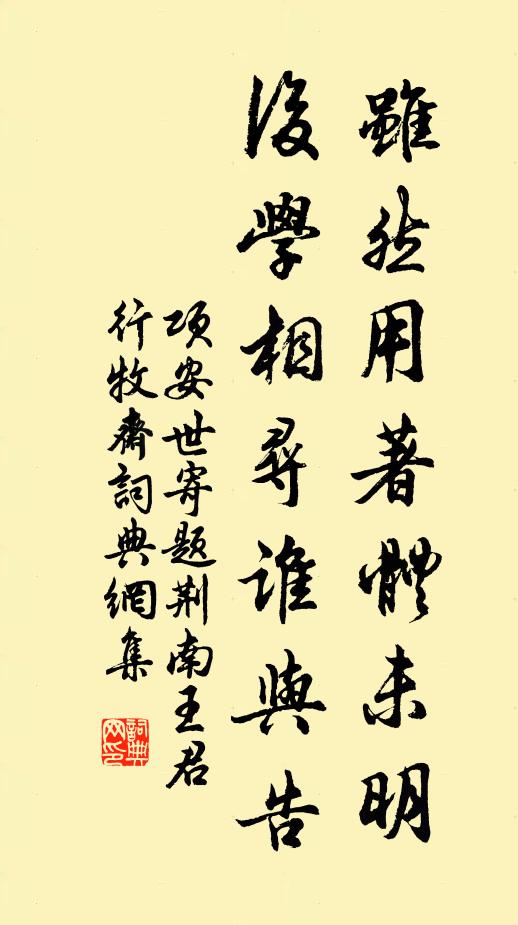 雖然用著體未明
後學相尋誰與告
項安世寄題荆南王君
行牧齋詞典網集
詞典
网印